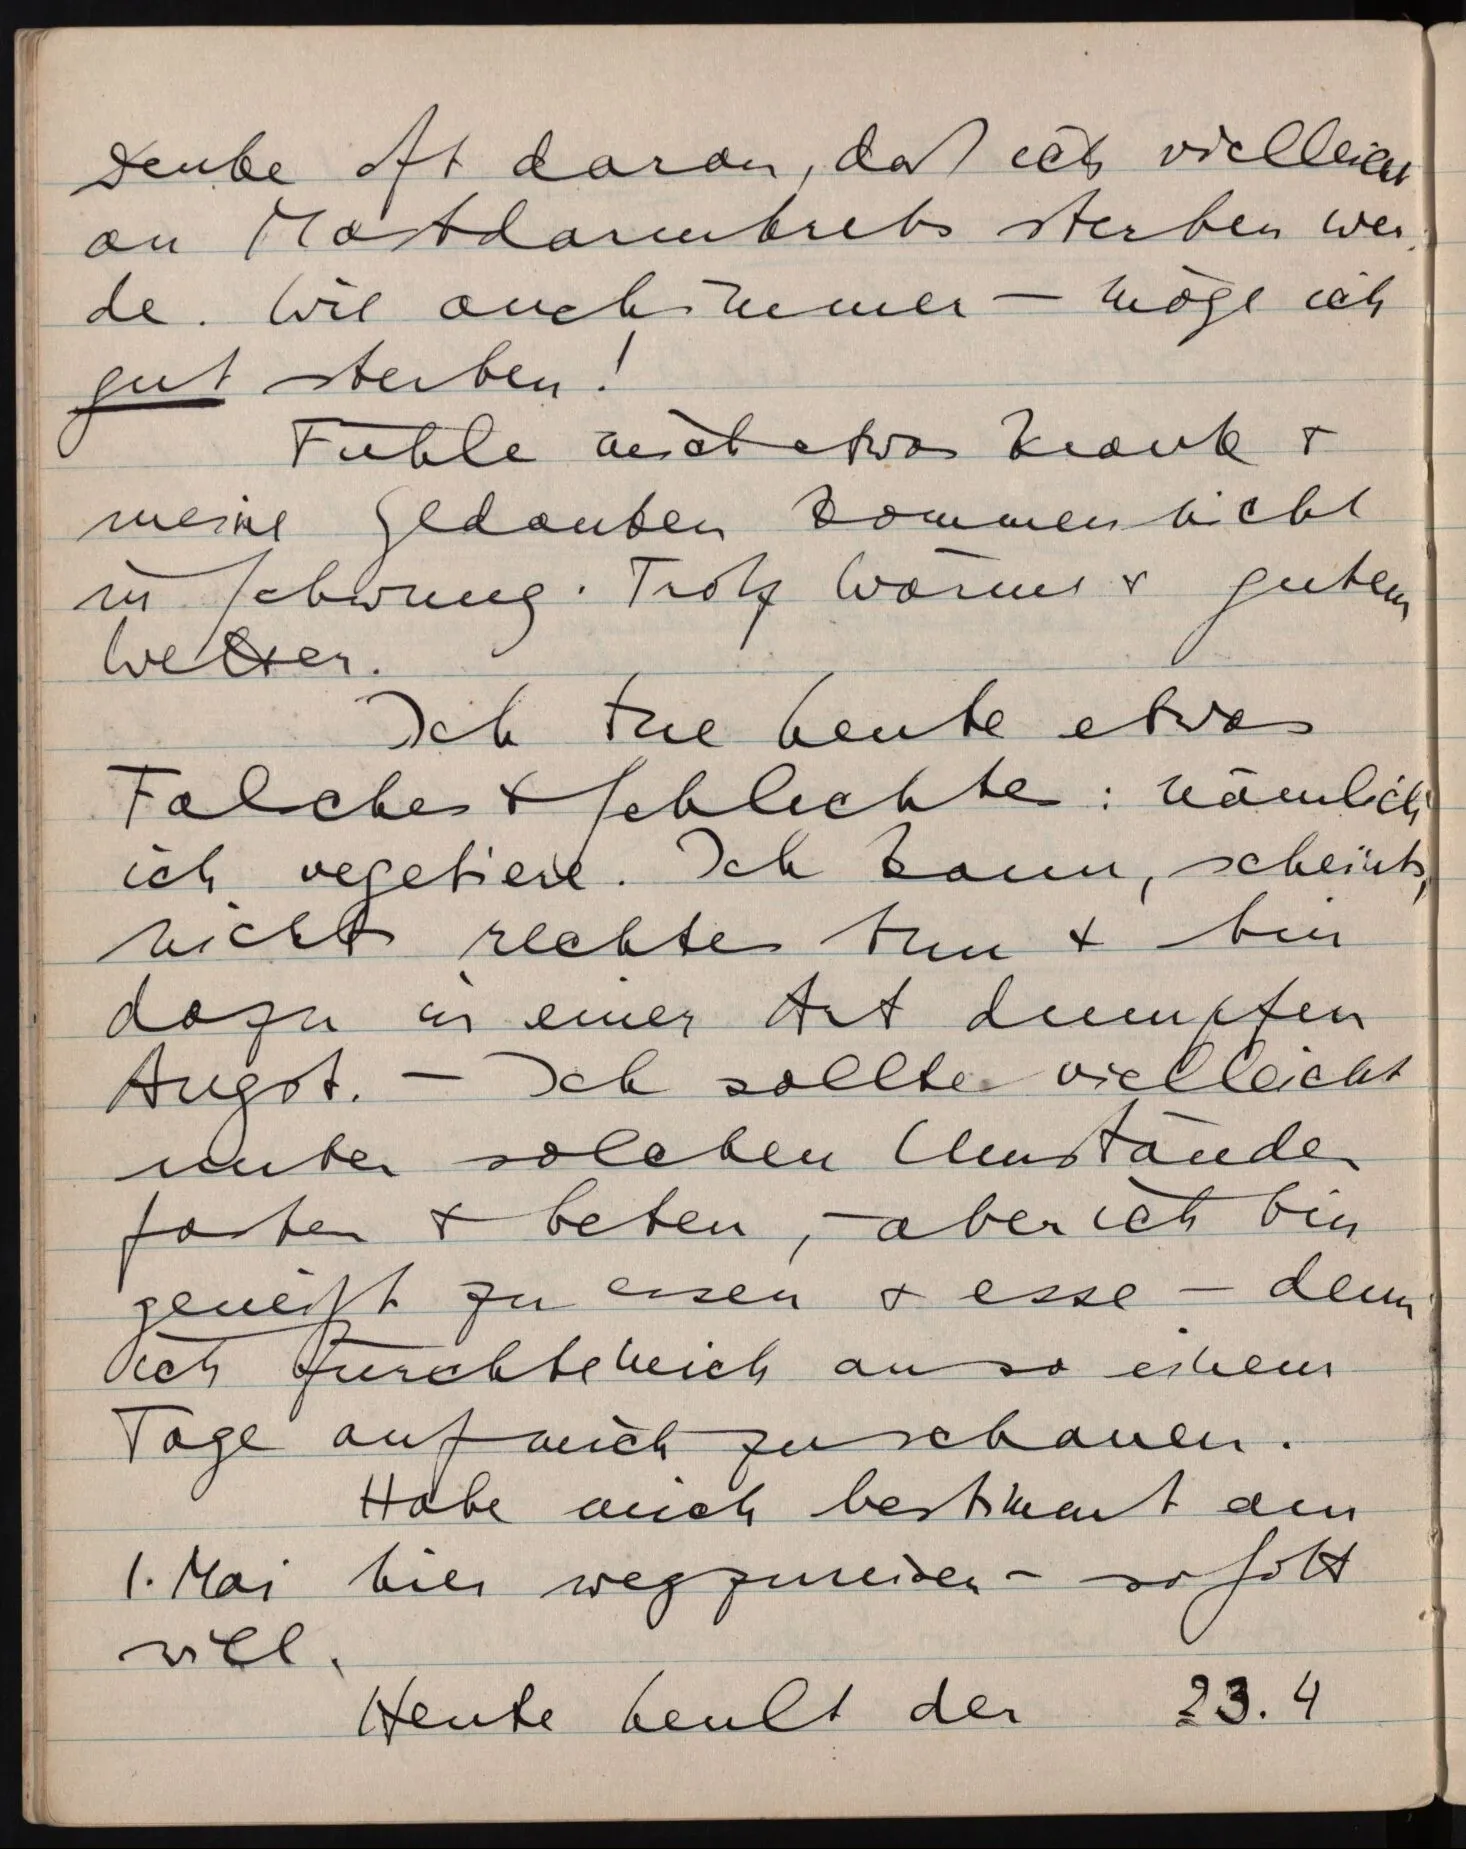 Denke oft daran, daß ich vielleicht
an Mastdarmkrebs sterben wer-
de. Wie auch immer – möge ich
gut sterben!
Fühle mich etwas krank +
meine Gedanken kommen nicht
in Schwung. Trotz Wärme + gutem
Wetter.
Ich tue heute etwas
Falsches + Schlechtes: nämlich
ich vegetiere. Ich kann, scheints,
nichts rechtes tun + bin
dazu in einer Art dumpfen
Angst. – Ich sollte vielleicht
unter solchen Umständen
fasten + beten, – aber ich bin
geneigt zu essen + esse – denn
ich fürchte mich an so einem
Tage auf mich zu schauen.
Habe mich bestimmt am
1. Mai hier wegzureisen – so Gott
will.
Heute heult der 23.4